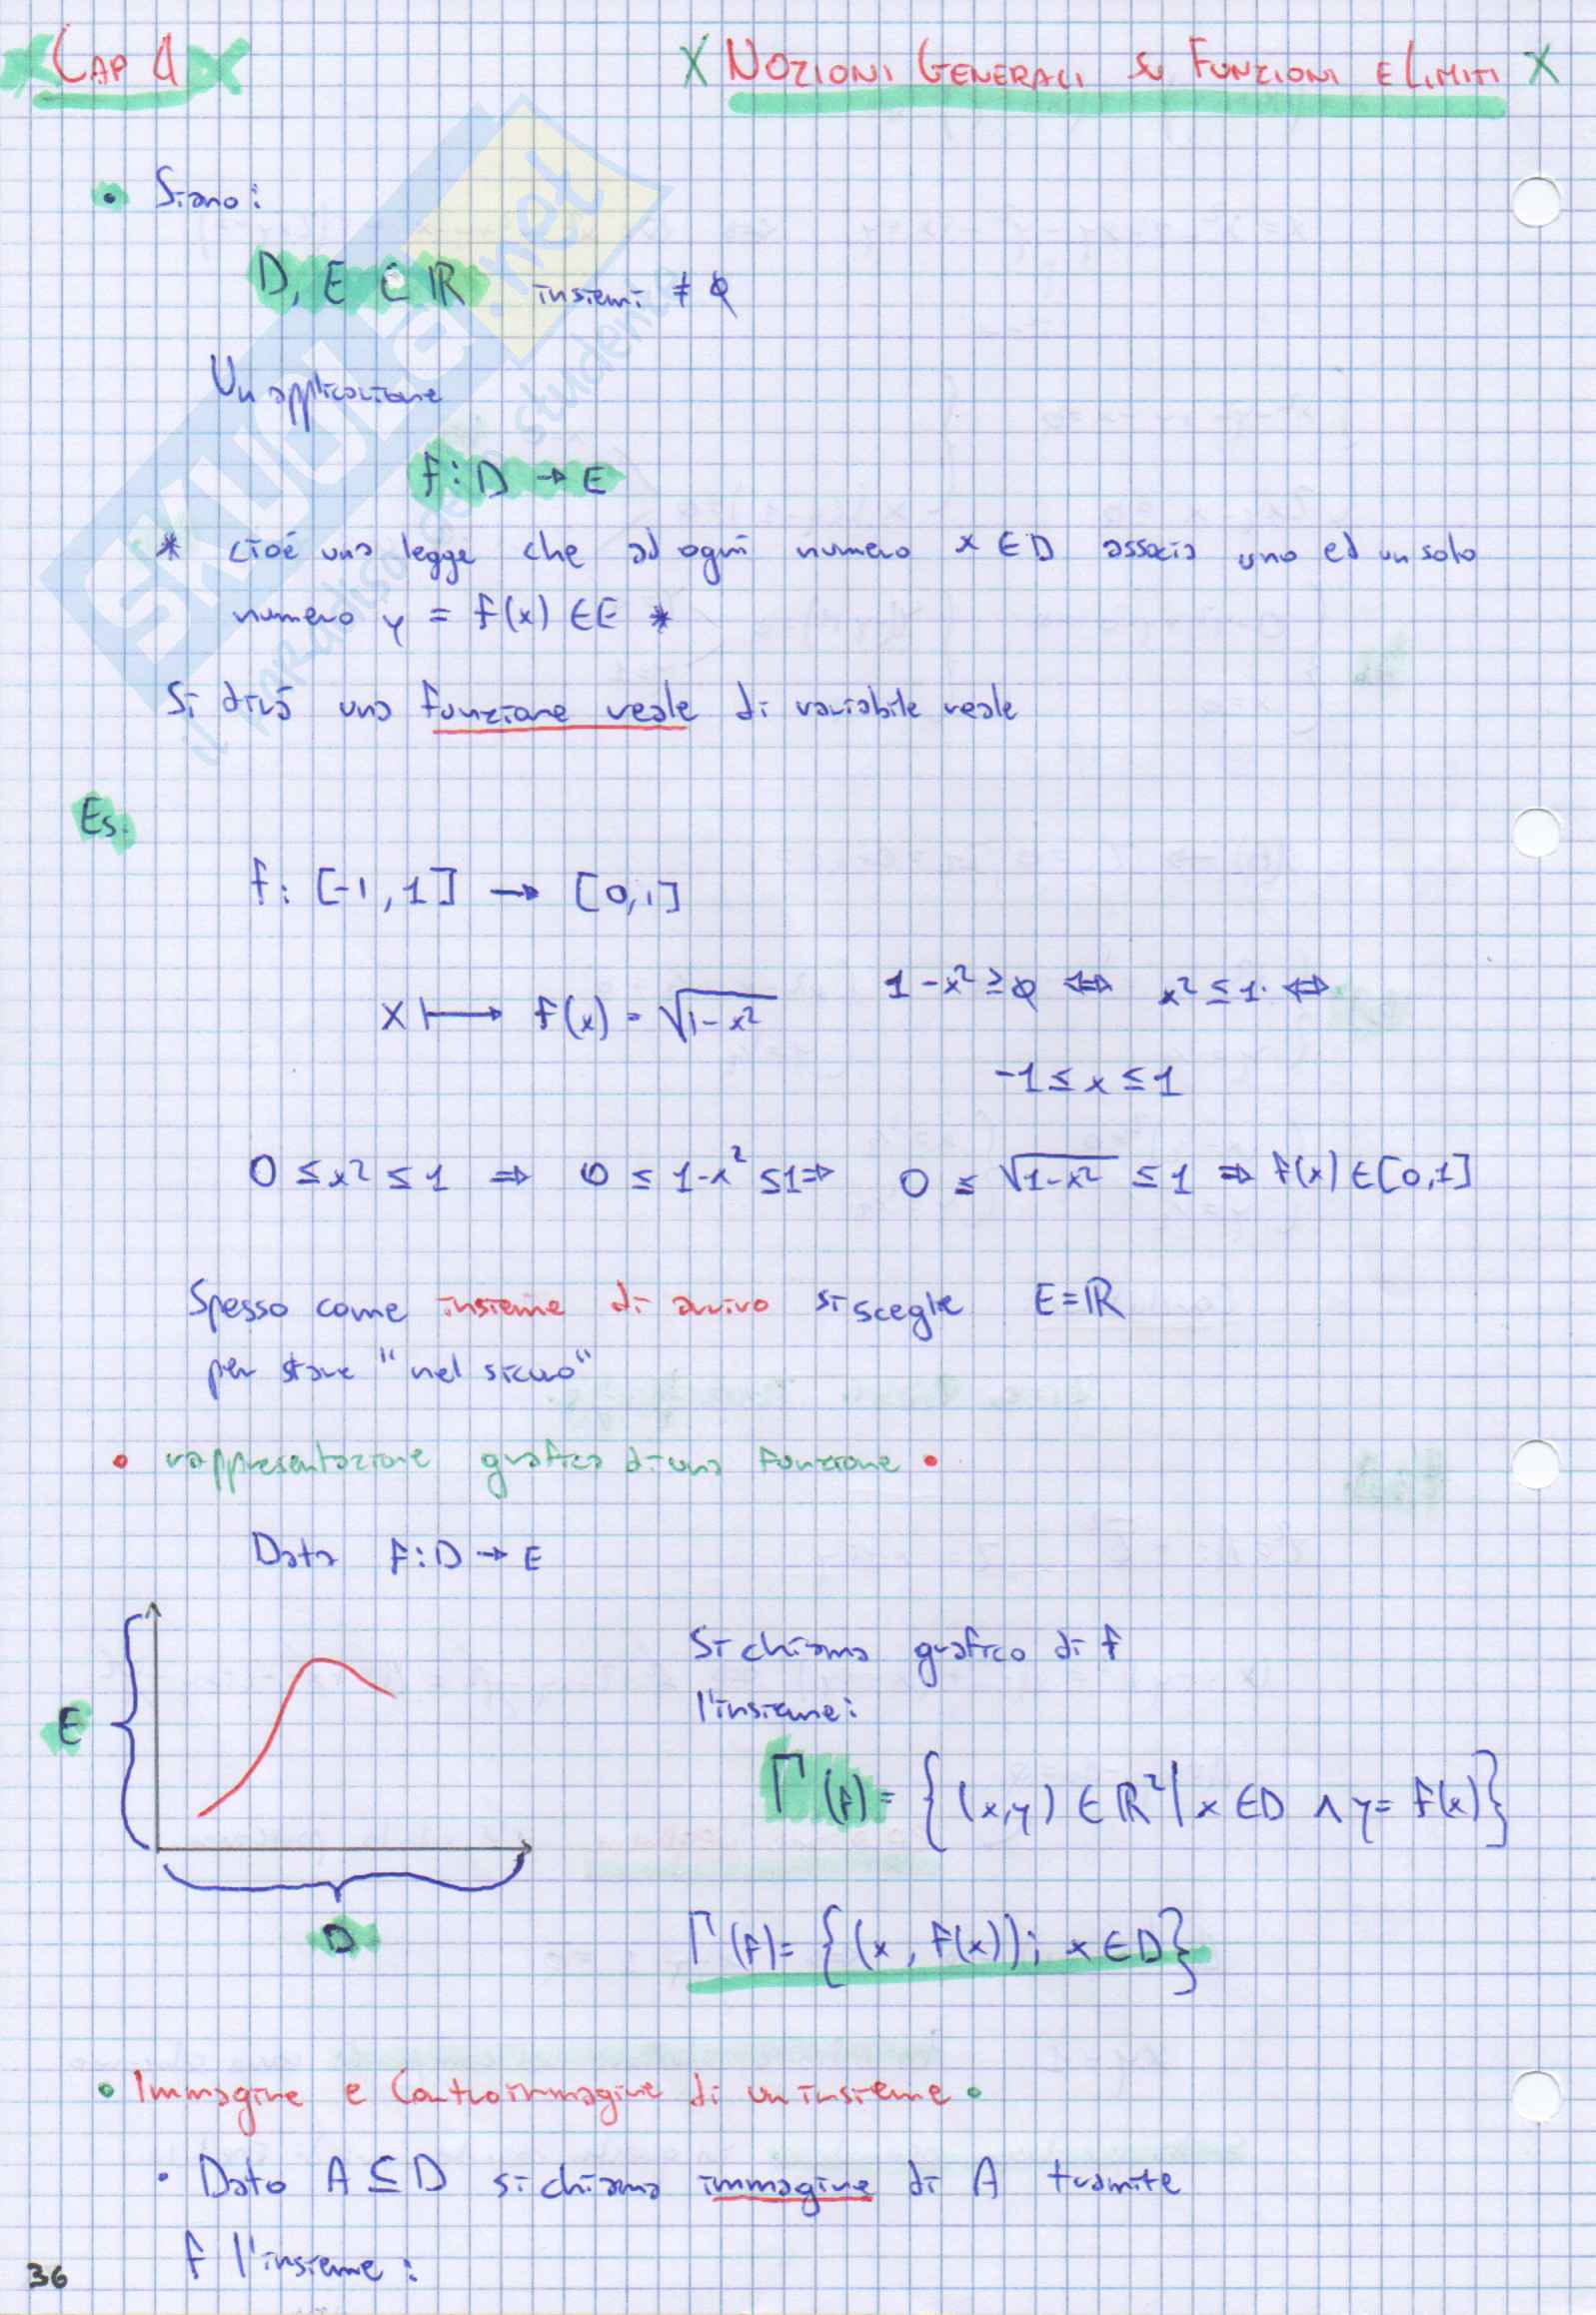 Cap 4
X Nozioni Generali su Funzioni e Limiti X
• Siano:
D, E ⊂ ℝ insiemi ≠ ∅
Un applicazione
f: D → E
* cioé una legge che ad ogni numero x ∈ D associa uno ed un solo
numero y = f(x) ∈ E *
Si dirà una funzione reale di variabile reale
Es:
f: [-1, 1] → [0, 1]
x ↦ f(x) = √(1-x²)    1-x² ≥ 0 ⇔ x² ≤ 1 ⇔
-1 ≤ x ≤ 1
0 ≤ x² ≤ 1 ⇒ 0 ≤ 1-x² ≤ 1 ⇒ 0 ≤ √(1-x²) ≤ 1 ⇒ f(x) ∈ [0,1]
Spesso come insieme di arrivo si sceglie E = ℝ
per stare "nel sicuro"
• rappresentazione grafica di una funzione •
Data f: D → E
E
D
Si chiama grafico di f
l'insieme:
Γ(f) = {(x,y) ∈ ℝ² | x ∈ D ∧ y = f(x)}
Γ(f) = {(x, f(x)); x ∈ D}
• Immagine e Controimmagine di un insieme •
• Dato A ⊆ D si chiama immagine di A tramite
f l'insieme:
36
SKUOLA.net
il paradiso dello studente